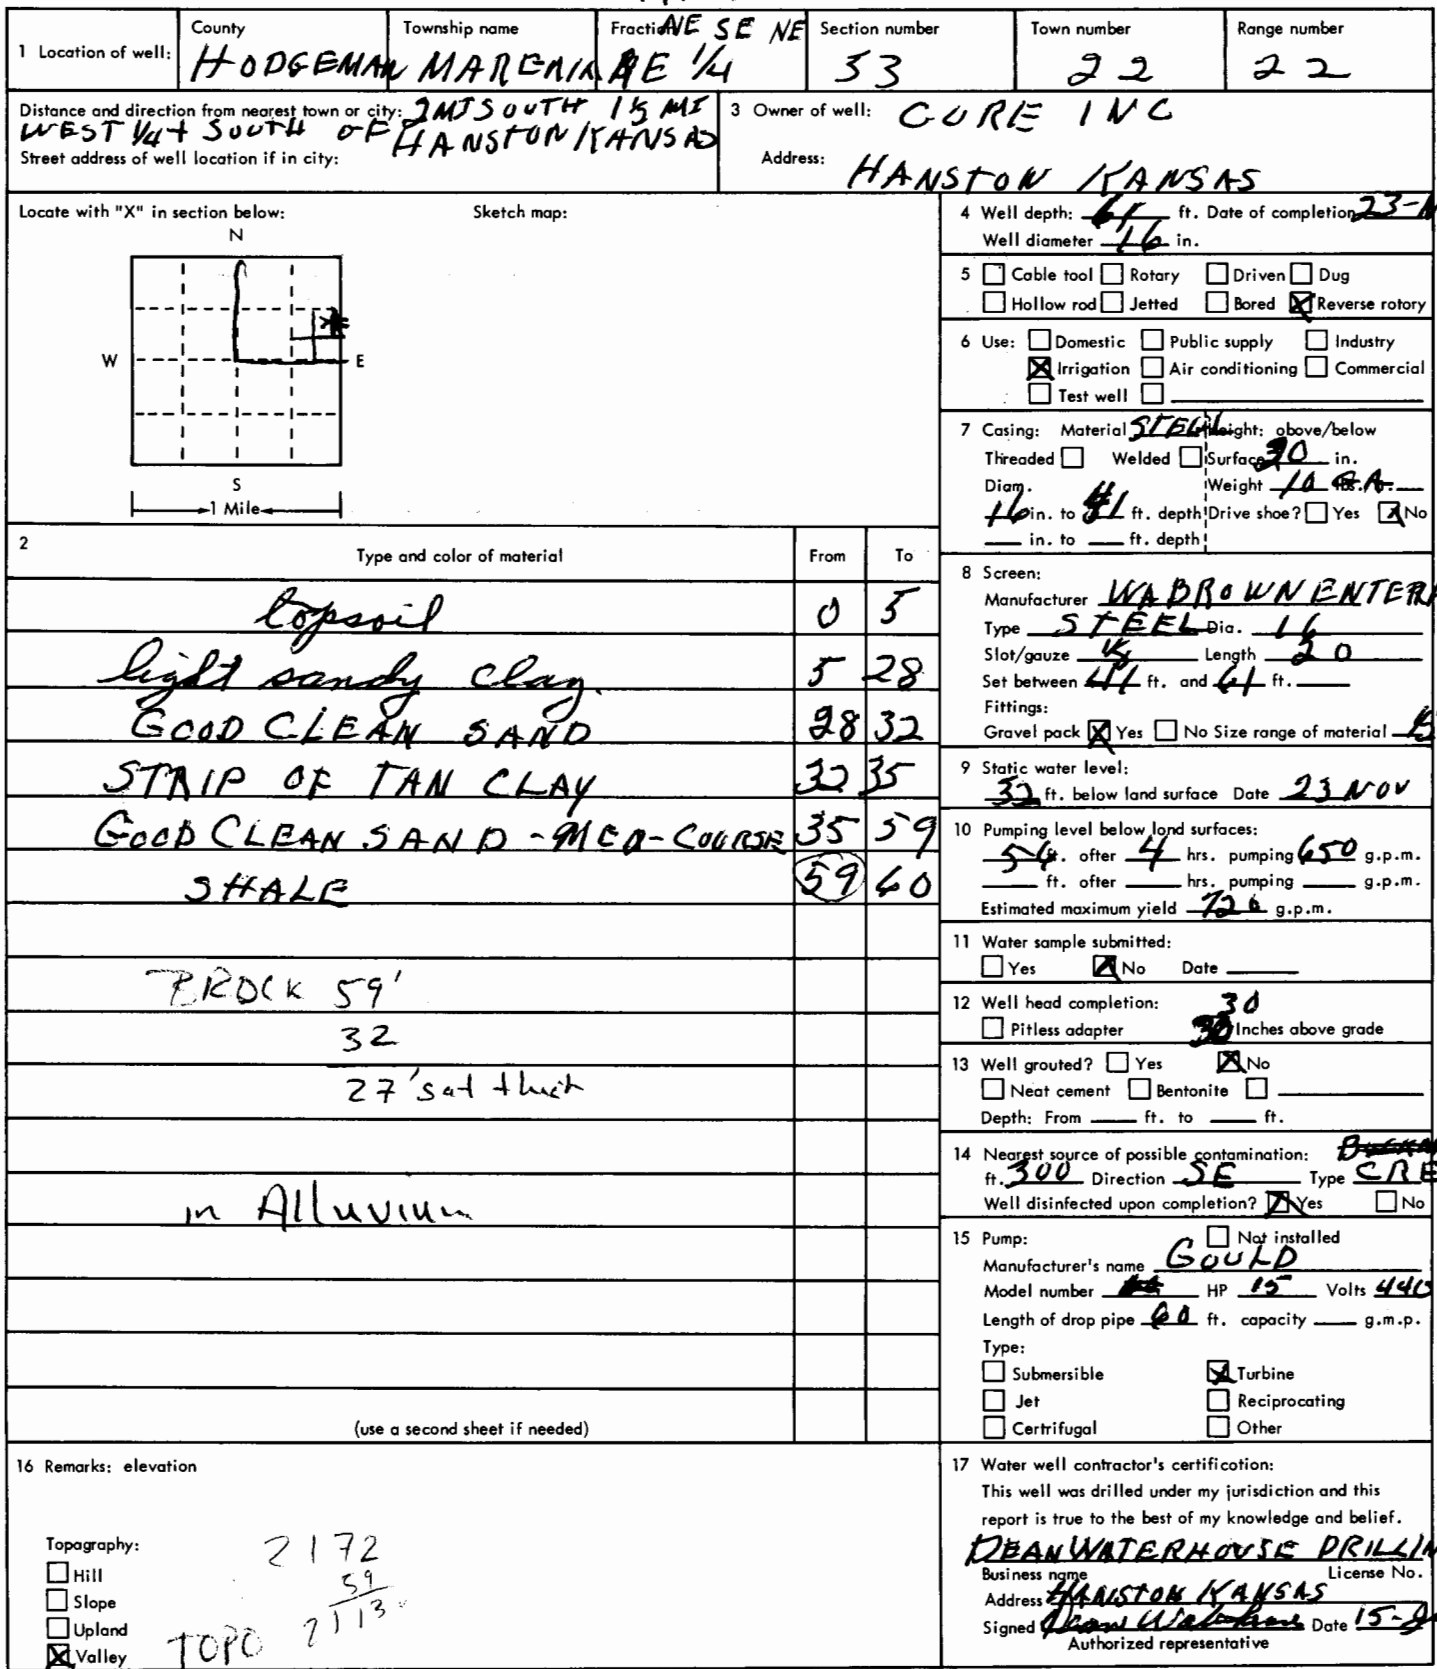 County Township name Fraction NE SE NE Section number Town number Range number
1 Location of well: HODGEMAN MARENA NE 1/4 33 22 22
Distance and direction from nearest town or city: 2MI SOUTH 1½ MI
WEST ¼ SOUTH OF HANSTON KANSAS
Street address of well location if in city:
3 Owner of well: CURE INC
Address: HANSTON KANSAS
Locate with "X" in section below: Sketch map:
N
W E
S
1 Mile
4 Well depth: 61 ft. Date of completion 23-
Well diameter 16 in.
5 Cable tool Rotary Driven Dug
Hollow rod Jetted Bored X Reverse rotory
6 Use: Domestic Public supply Industry
X Irrigation Air conditioning Commercial
Test well
7 Casing: Material STEEL Height: above/below
Threaded Welded Surface 30 in.
Diam. Weight 10 GA.
16 in. to 41 ft. depth Drive shoe? Yes X No
in. to ft. depth
2 Type and color of material From To
topsoil 0 5
light sandy clay 5 28
GOOD CLEAN SAND 28 32
STRIP OF TAN CLAY 32 35
GOOD CLEAN SAND - MED - COURSE 35 59
SHALE 59 60
BROCK 59'
32
27' sat thick
in Alluvium
(use a second sheet if needed)
8 Screen:
Manufacturer WA BROWN ENTERP
Type STEEL Dia. 16
Slot/gauze ⅛ Length 20
Set between 41 ft. and 61 ft.
Fittings:
Gravel pack X Yes No Size range of material
9 Static water level:
32 ft. below land surface Date 23 NOV
10 Pumping level below land surfaces:
54 ft. after 4 hrs. pumping 650 g.p.m.
ft. after hrs. pumping g.p.m.
Estimated maximum yield 720 g.p.m.
11 Water sample submitted:
Yes X No Date
12 Well head completion: 30
Pitless adapter 30 Inches above grade
13 Well grouted? Yes X No
Neat cement Bentonite
Depth: From ft. to ft.
14 Nearest source of possible contamination:
ft. 300 Direction SE Type CRE
Well disinfected upon completion? X Yes No
15 Pump: Not installed
Manufacturer's name GOULD
Model number HP 15 Volts 440
Length of drop pipe 60 ft. capacity g.m.p.
Type:
Submersible X Turbine
Jet Reciprocating
Certrifugal Other
16 Remarks: elevation
Topagraphy:
Hill
Slope
Upland
X Valley
2172
59
2113
TOPO
17 Water well contractor's certification:
This well was drilled under my jurisdiction and this
report is true to the best of my knowledge and belief.
DEAN WATERHOUSE DRILLIN
Business name License No.
Address HANSTON KANSAS
Signed Dean Waterhouse Date 15-
Authorized representative